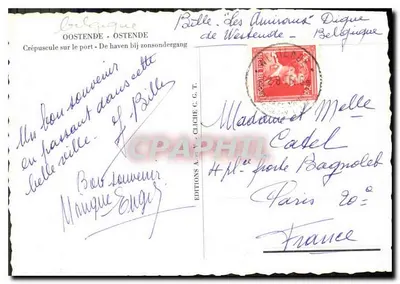 Belgique
OOSTENDE - OSTENDE
Crépuscule sur le port - De haven bij zonsondergang
Bille - les
Digue
de Westende - Belgique
Un bon souvenir
en passant dans cette
belle ville.
Bille
Bon souvenir
Monique
EDITIONS
CLICHE C. G. T.
Madame et Melle
Catel
4 place porte Bagnolet
Paris 20e
France
CPArama.com